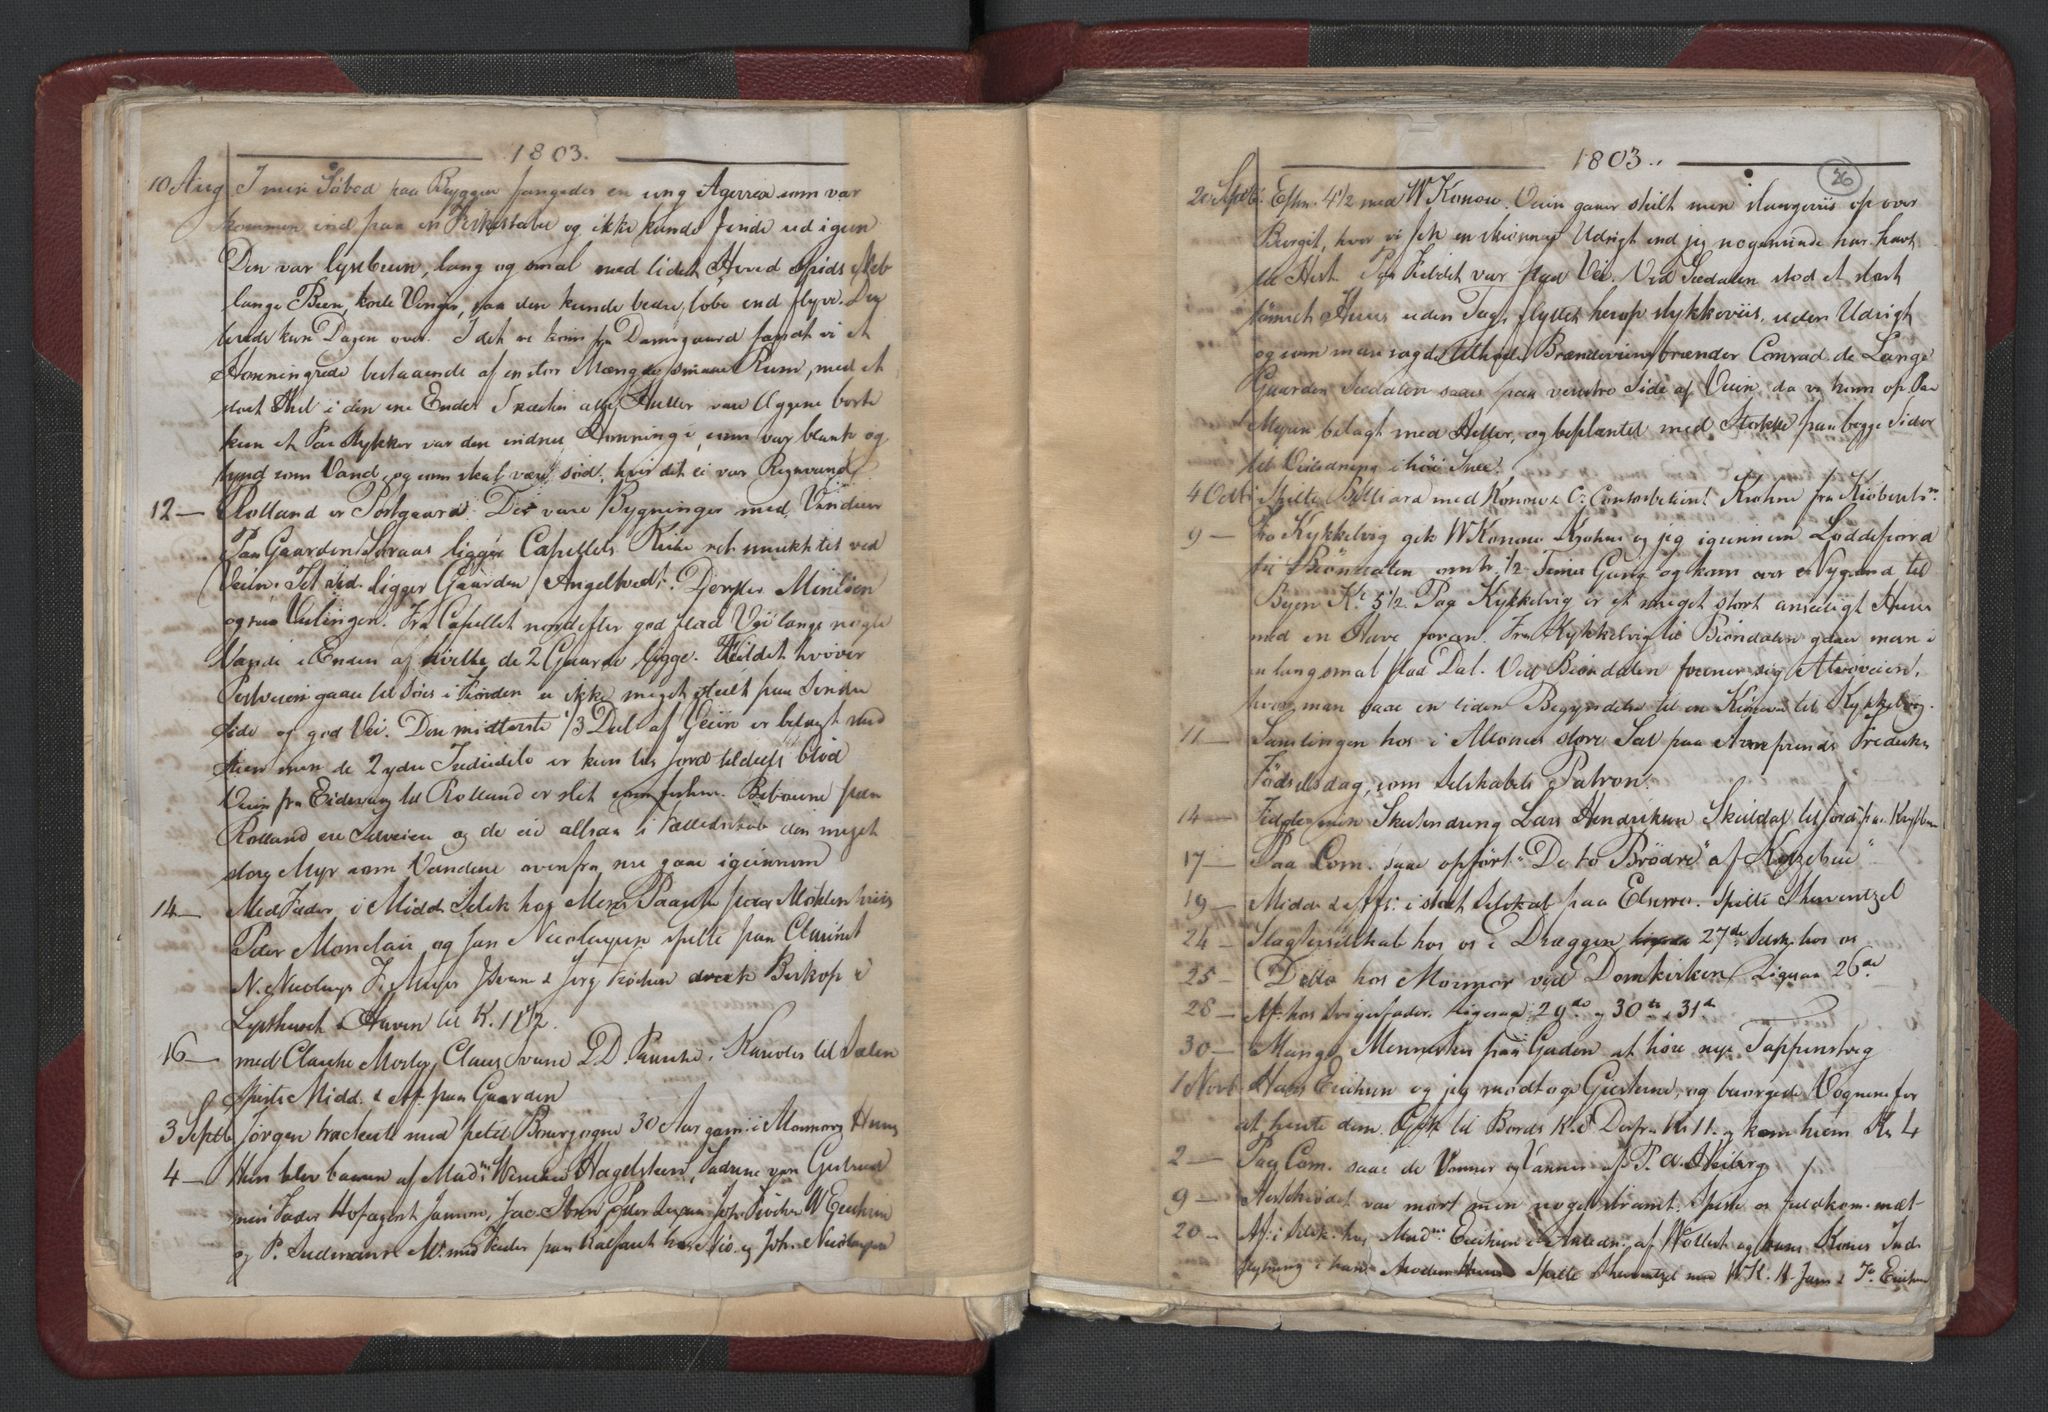 1803.
10 Aug I min Søbod paa Bryggen fangedes en ung Agerrixe som var
kommen ind paa en og ikke kunde finde ud igien
Den var lysebrun, lang og smal med lidet Hoved spids Neb
lange Been, korte Vinger, saa den kunde bedre løbe end flyve. Den
levede kun Dagen over. I det vi kom fra Damsgaard fandt vi et
Honningrede bestaaende af en stor Mængde smaae Rum, med et
stort Hul i den ene Ende. I næsten alle Huller vare Æggene borte
kun et Par Stykker var der endnu Honning i, som var blank og
tynd som Vand, og som skal være sød, hvis det ei var Regnvand
12 — Rolland er Postgaard. Der vare Bygninger med Vinduer
Paa Gaarden ligger Capellets Kirke ret smukt tet ved
Veien. Tet ved ligger Gaarden Angeltvedt.
og saa Fra Capellet nordefter god flad Vei langs nogle
Vande i Enden af hvilke de 2 Gaarde ligge. Fieldet hvorover
Postveien gaaer til Søes i Fiorden er ikke meget steilt paa Søndre
Side og god Vei. Den midterste 1/3 Deel af Veien er belagt med
Steen men de 2 ydre Trediedele er kun til Jord tildeels blød
Veien fra Eidsvaag til Rolland er slet som forhen. Beboerne paa
Rolland ere Selveiere og de eie altsaa i Fælledskab den meget
store Myr som Vandene ovenfra nu gaae igiennem
14 — Med Fader i Midd. Selsk. hos Mons. Paasche paa Møhlenpriis
Peder Monclair og Jan Nicolaysen spille paa Clarinet
N. Nicolays. F. Meyer J Svane & Jørg Krohn drak Biskop i
Lysthuset i Haven til K. 11 1/2.
16 — med Clausine Morly, Claus Svane D D Paasche i Karioler til Sælen
Spiste Midd. & Aft. paa Gaarden
3 Septb Jørgen tracteerte med petit Bourgogne 30 Aar gam. i Mormors Huus
4 — Hun blev baaren af Mad. Wencke Hagelsteen, Fadrene vare Gertrud
min Fader Hofagent Janson, Jac. Joh: Krohn W Erichsen
og P. Sudmann. M. med Fader paa Kalfaret hos Nic. og Joh. Nicolaysen
1803.
26
20 Septb. Efterm. 4 1/2 med W Konow. Veien gaaer steilt men slangeviis op over
Bierget, hvor vi fik en skiønnere Udsigt end jeg nogensinde har havt
til Hest. Paa Fieldet var flad Vei. Ved Sædalen stod et stort
tømret Huus uden Tag, flyttet herop stykkeviis, uden Udsigt
og som man sagde tilhørte Brændeviinsbrænder Conrad de Lange
Gaarden Sædalen saae paa venstre Side af Veien, da vi kom op. Paa
Myren belagt med Heller, og beplantet med Stokke paa begge Sider
til Veiledning i høi Snee.
4 Octb: Spilte Billiard med Konow & C: Contorbetient Krohn fra Kiøbenh.
9 — Fra Kykkelvig gik W Konow Krohn og jeg igiennem Loddefiord
til Biøndalen omtr. 1/2 Times Gang og kom over Nygaard til
Byen Kl. 5 1/2. Paa Kykkelvig er et meget stort anseeligt Huus
med en Have foran. Fra Kykkelvig til Biøndalen gaaer man i
en lang smal flad Dal. Ved Biøndalen forener sig Alvøveien,
hvor man saae en liden Begyndelse til en Kiørevei til Kykkelvig.
11 — Samlingen hos i Altonas store Sal paa Arveprinds Frederiks
Fødselsdag, som Selskabets Patron.
14 — Fulgte min Skudsdreng Lars Hendriksen Skuldal til Jord fra
17 — Paa Com. saae opført "De to Brødre" af Kotzebue"
19 — Midd. & Aft: i stort Selskab paa Elsesro. Spilte Skervenzel
24 — Slagterselskab hos os i Dræggen 27de Selsk. hos os
25 — Ditto hos Mormor ved Domkirken Ligesaa 26de
28 — Aft. hos Svigerfader. ligesaa 29de og 30te & 31te
30 — Mange Mennesker paa Gaden at høre nye Tappenstreg
1 Novb Hans Erichsen og jeg modtoge Giesterne, og besørgede Vognene for
at hente dem. Gik til Bords K. Derfra Kl 11 og kom hiem Kl. 4
2 — Paa Com. saae de Vonner og Vanner af P. A. Heiberg
9 — Hestekiødet var mørt men noget stramt. Spiste os fuldkom. mæt
20 — Aft. i Selsk. hos Mad. Erichsen i Anledn. af Wollert og hans Kones Ind-
flytning i hans Moders Huus Spilte Skervenzel med W K. H Jans & Fr. Erichsen